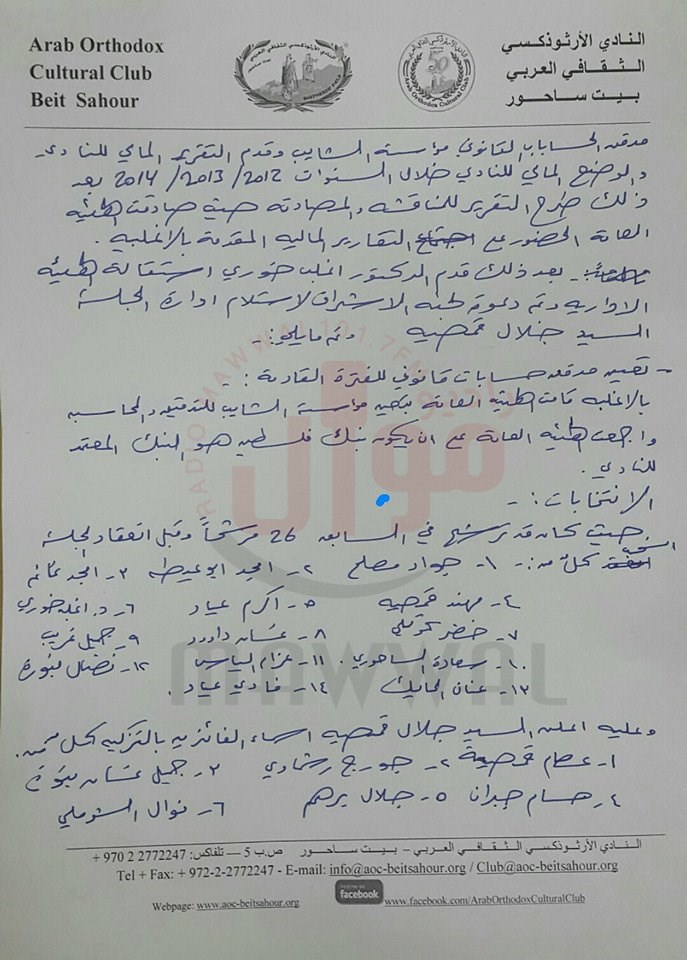 Arab Orthodox
Cultural Club
Beit Sahour
النادي الأرثوذكسي
الثقافي العربي
بيت ساحور
مدقق الحسابات القانوني مؤسسة الشايب وقدم التقرير المالي للنادي
والوضع المالي للنادي خلال السنوات 2012/2013/2014 بعد
ذلك طرح التقرير للمناقشة والمصادقة حيث صادقت الهيئة
العامة الحضور على التقارير المالية المقدمة بالاغلبية.
بعد ذلك قدم الدكتور اغلب خوري استقالة الهيئة
الادارية وتم دعوة لجنة الاشراف لاستلام ادارة الجلسة
السيد جلال قمصية وتم مايلي:-
- تعيين مدقق حسابات قانوني للفترة القادمة:-
بالاغلبية قامت الهيئة العامة مؤسسة الشايب للتدقيق والمحاسبة
واجمعت الهيئة العامة على ان يكون بنك فلسطين هو البنك المعتمد
للنادي.
الانتخابات:-
حيث كان قد ترشح في السابق 26 مرشحاً وقبل انعقاد الجلسة
انسحب كل من:- ١- جواد مصلح ٢- امجد ابوعيطة ٣- امجد غانم
٤- مهند قمصية ٥- اكرم عياد ٦- د. اغلب خوري
٧- خضر ٨- غسان داوود ٩- جميل غريب
١٠- سعادة الساحوري. ١١- عزام الياس ١٢- نضال بنورة
١٣- عنان الحايك ١٤- فادي عياد.
وعليه اعلن السيد جلال قمصية اسماء الفائزين بالتزكية كل من:
١- عصام قمصية ٢- جورج رشماوي ٣- جميل غسان بنورة
٤- حسام جبران ٥- جلال برهم ٦- نوال الشوملي
النادي الأرثوذكسي الثقافي العربي – بيت ساحور ص.ب 5 – تلفاكس: 2772247 2 970 +
Tel + Fax: + 972-2-2772247 - E-mail: info@aoc-beitsahour.org / Club@aoc-beitsahour.org
Webpage: www.aoc-beitsahour.org facebook www.facebook.com/ArabOrthodoxCulturalClub
RADIO MAWWAL 101.7FM
موال
MAWWAL